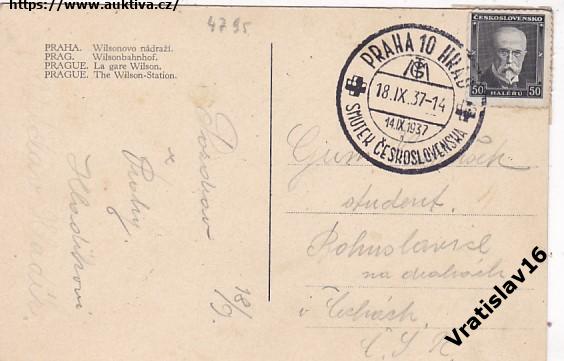 https://www.auktiva.cz/
4795
PRAHA. Wilsonovo nádraží.
PRAG. Wilsonbahnhof.
PRAGUE. La gare Wilson.
PRAGUE. The Wilson-Station.
PRAHA 10 HRAD
18.IX.37-14
14.IX.1937
1
SMUTEK ČESKOSLOVENSKA
ČESKOSLOVENSKO
50 HALÉŘŮ 50
Pozdrav
z
Prahy
18/9.
student
Bohuslavice
v Čechách
Č. S. R.
Vratislav16